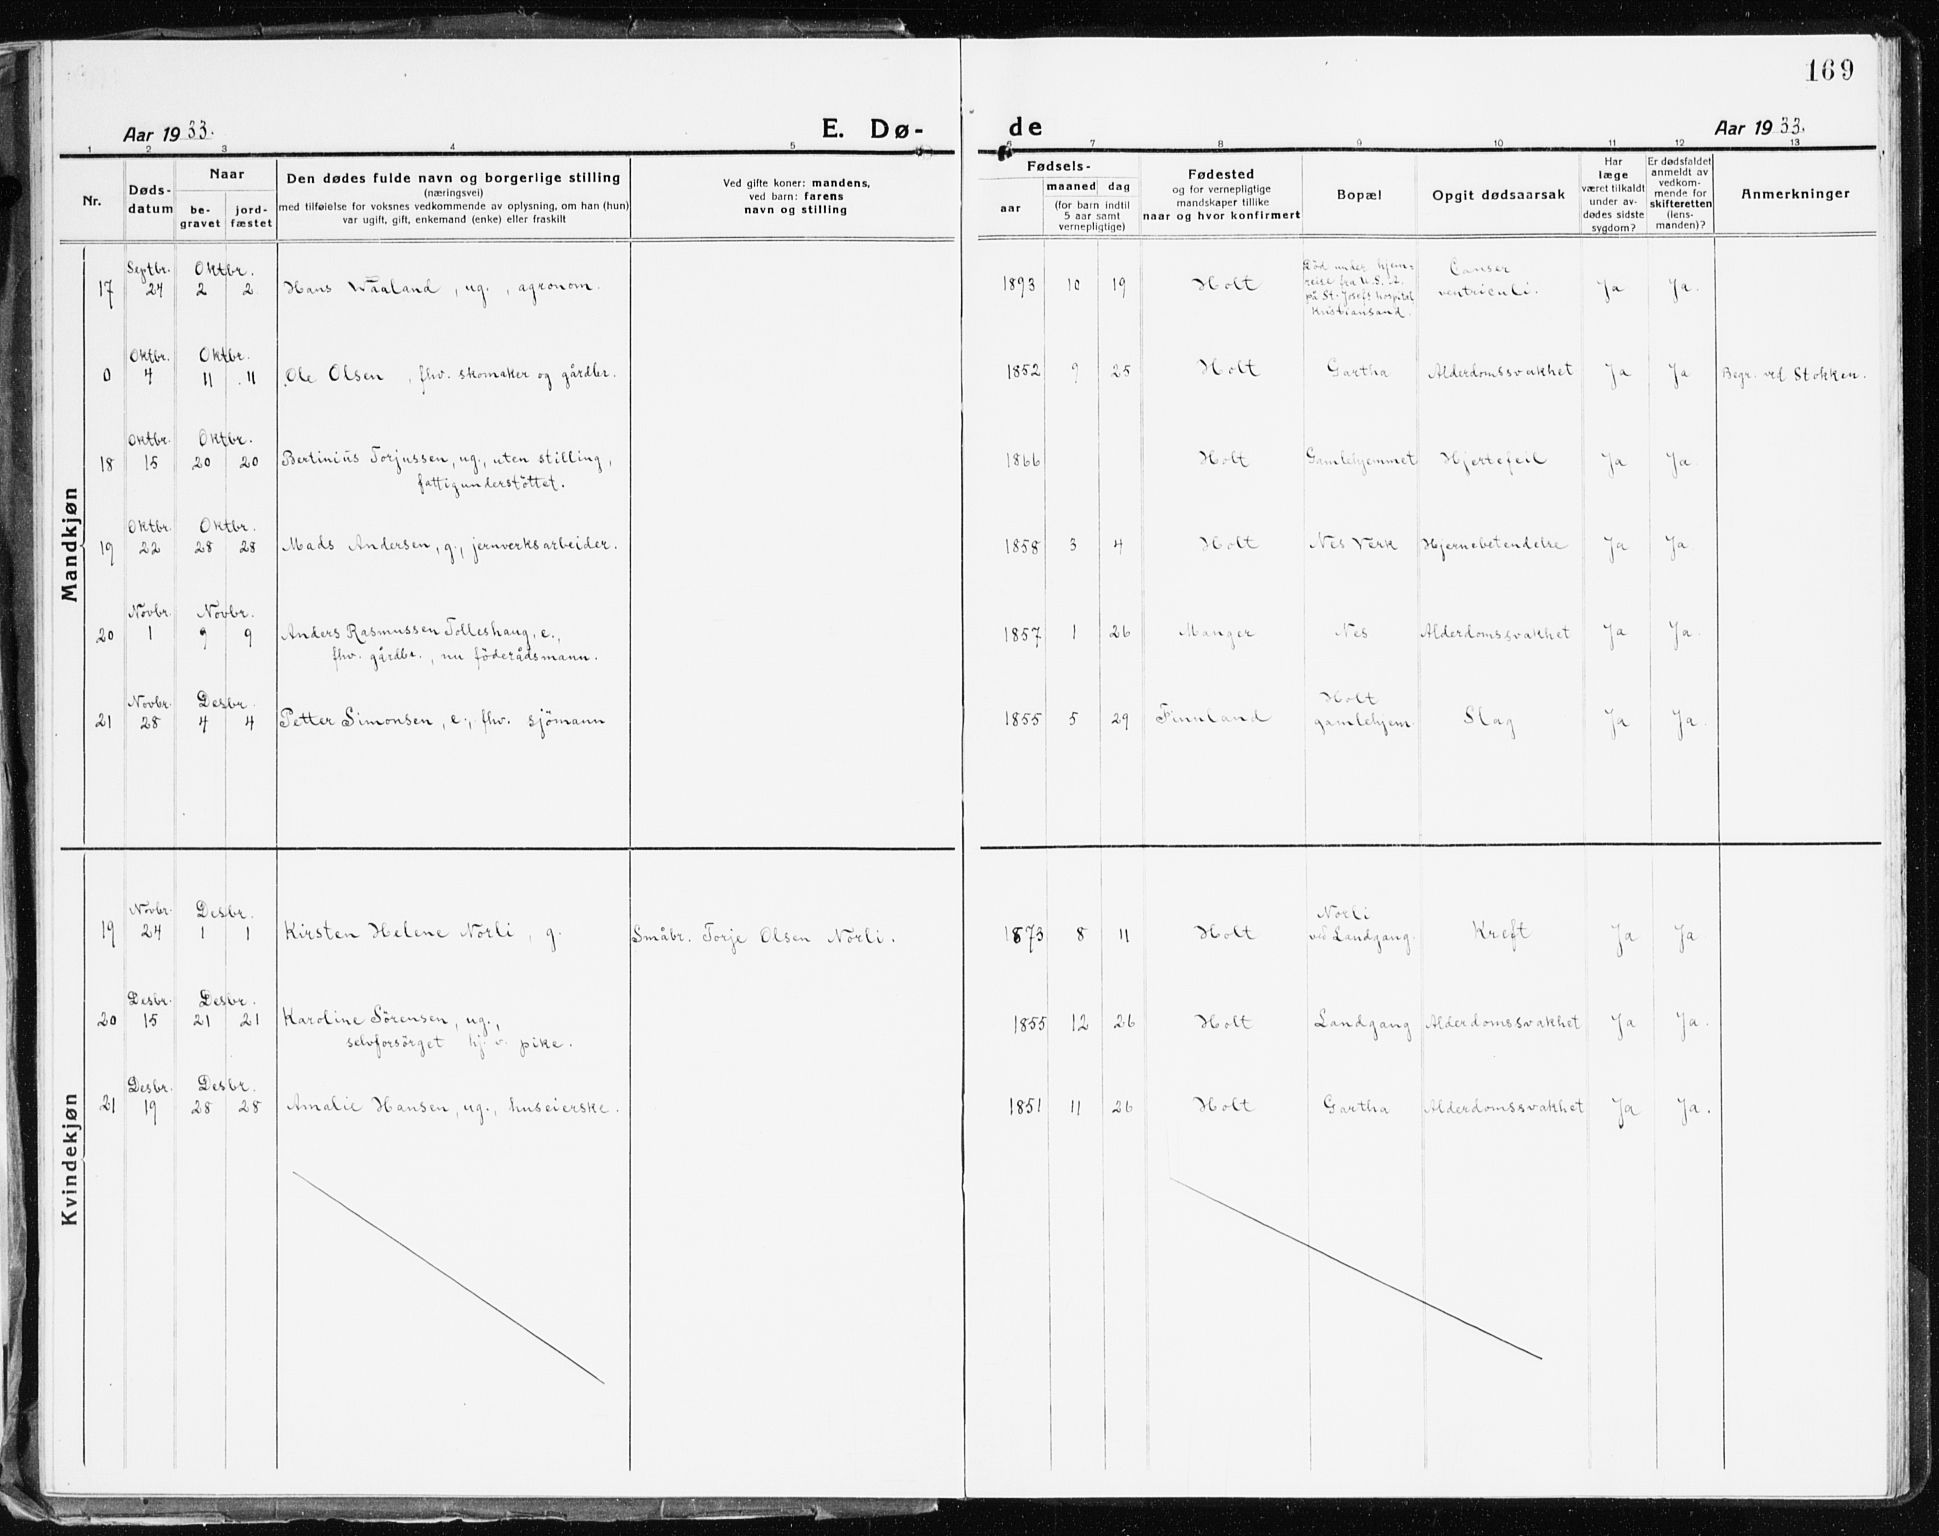 169
Aar 1933. E. Dø- de Aar 1933.
1 2 3 4 5 6 7 8 9 10 11 12 13
Nr. Døds-datum Naar be-gravet jord-fæstet Den dødes fulde navn og borgerlige stilling (næringsvei) med tilføielse for voksnes vedkommende av oplysning, om han (hun) var ugift, gift, enkemand (enke) eller fraskilt Ved gifte koner: mandens, ved barn: farens navn og stilling Fødsels- aar maaned dag (for barn indtil 5 aar samt vernepligtige) Fødested og for vernepligtige mandskaper tillike naar og hvor konfirmert Bopæl Opgit dødsaarsak Har læge været tilkaldt under av-dødes sidste sygdom? Er dødsfaldet anmeldt av vedkom-mende for skifteretten (lens-manden)? Anmerkninger
Mandkjøn
17 Septbr. 24 Oktbr. 2 2 Hans Waaland, ug., agronom. 1893 10 19 Holt Död under hjem-reise fra U.S.A. på St. Josefs hospital Kristiansand. Canser ventriculi. Ja Ja.
0 Oktbr. 4 Oktbr. 11 11 Ole Olsen, fhv. skomaker og gårdbr. 1852 9 25 Holt Gartha Alderdomssvakhet Ja Ja Begr. ved Stokken.
18 Oktbr. 15 Oktbr. 20 20 Bertinius Torjussen, ug., uten stilling,
fattigunderstöttet. 1866 Holt Gamlehjemmet Hjertefeil Ja Ja.
19 Oktbr. 22 Oktbr. 28 28 Mads Andersen, g., jernverksarbeider. 1858 3 4 Holt Nes Verk Hjernebetendelse Ja Ja.
20 Novbr. 1 Novbr. 9 9 Anders Rasmussen Tolleshaug, e.,
fhv. gårdbr., nu föderådsmann. 1857 1 26 Manger Nes Alderdomssvakhet Ja Ja.
21 Novbr. 28 Desbr. 4 4 Petter Simonsen, e., fhv. sjömann 1855 5 29 Finnland Holt gamlehjem Slag Ja Ja.
Kvindekjøn
19 Novbr. 24 Desbr. 1 1 Kirsten Helene Norli, g. Småbr. Torje Olsen Norli. 1873 8 11 Holt Norli ved Landgang. Kreft Ja Ja.
20 Desbr. 15 Desbr. 21 21 Karoline Sörensen, ug.,
selvforsörget hj. v. pike. 1855 12 26 Holt Landgang Alderdomssvakhet Ja Ja.
21 Desbr. 19 Desbr. 28 28 Amalie Hansen, ug., huseierske. 1851 11 26 Holt Gartha Alderdomssvakhet Ja Ja.